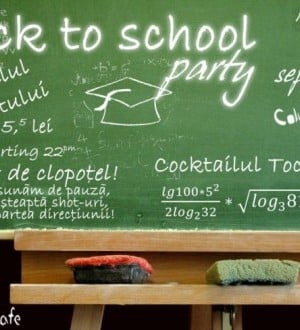 ck to school
party
lul
sep
tului
5,5 lei
Ca
rting 22pm
t de clopotel!
sunăm de pauză,
șteaptă shot-uri,
partea direcțiunii!
Cocktailul Toc
lg100*5²
2log₂32
* √log₃8
afe